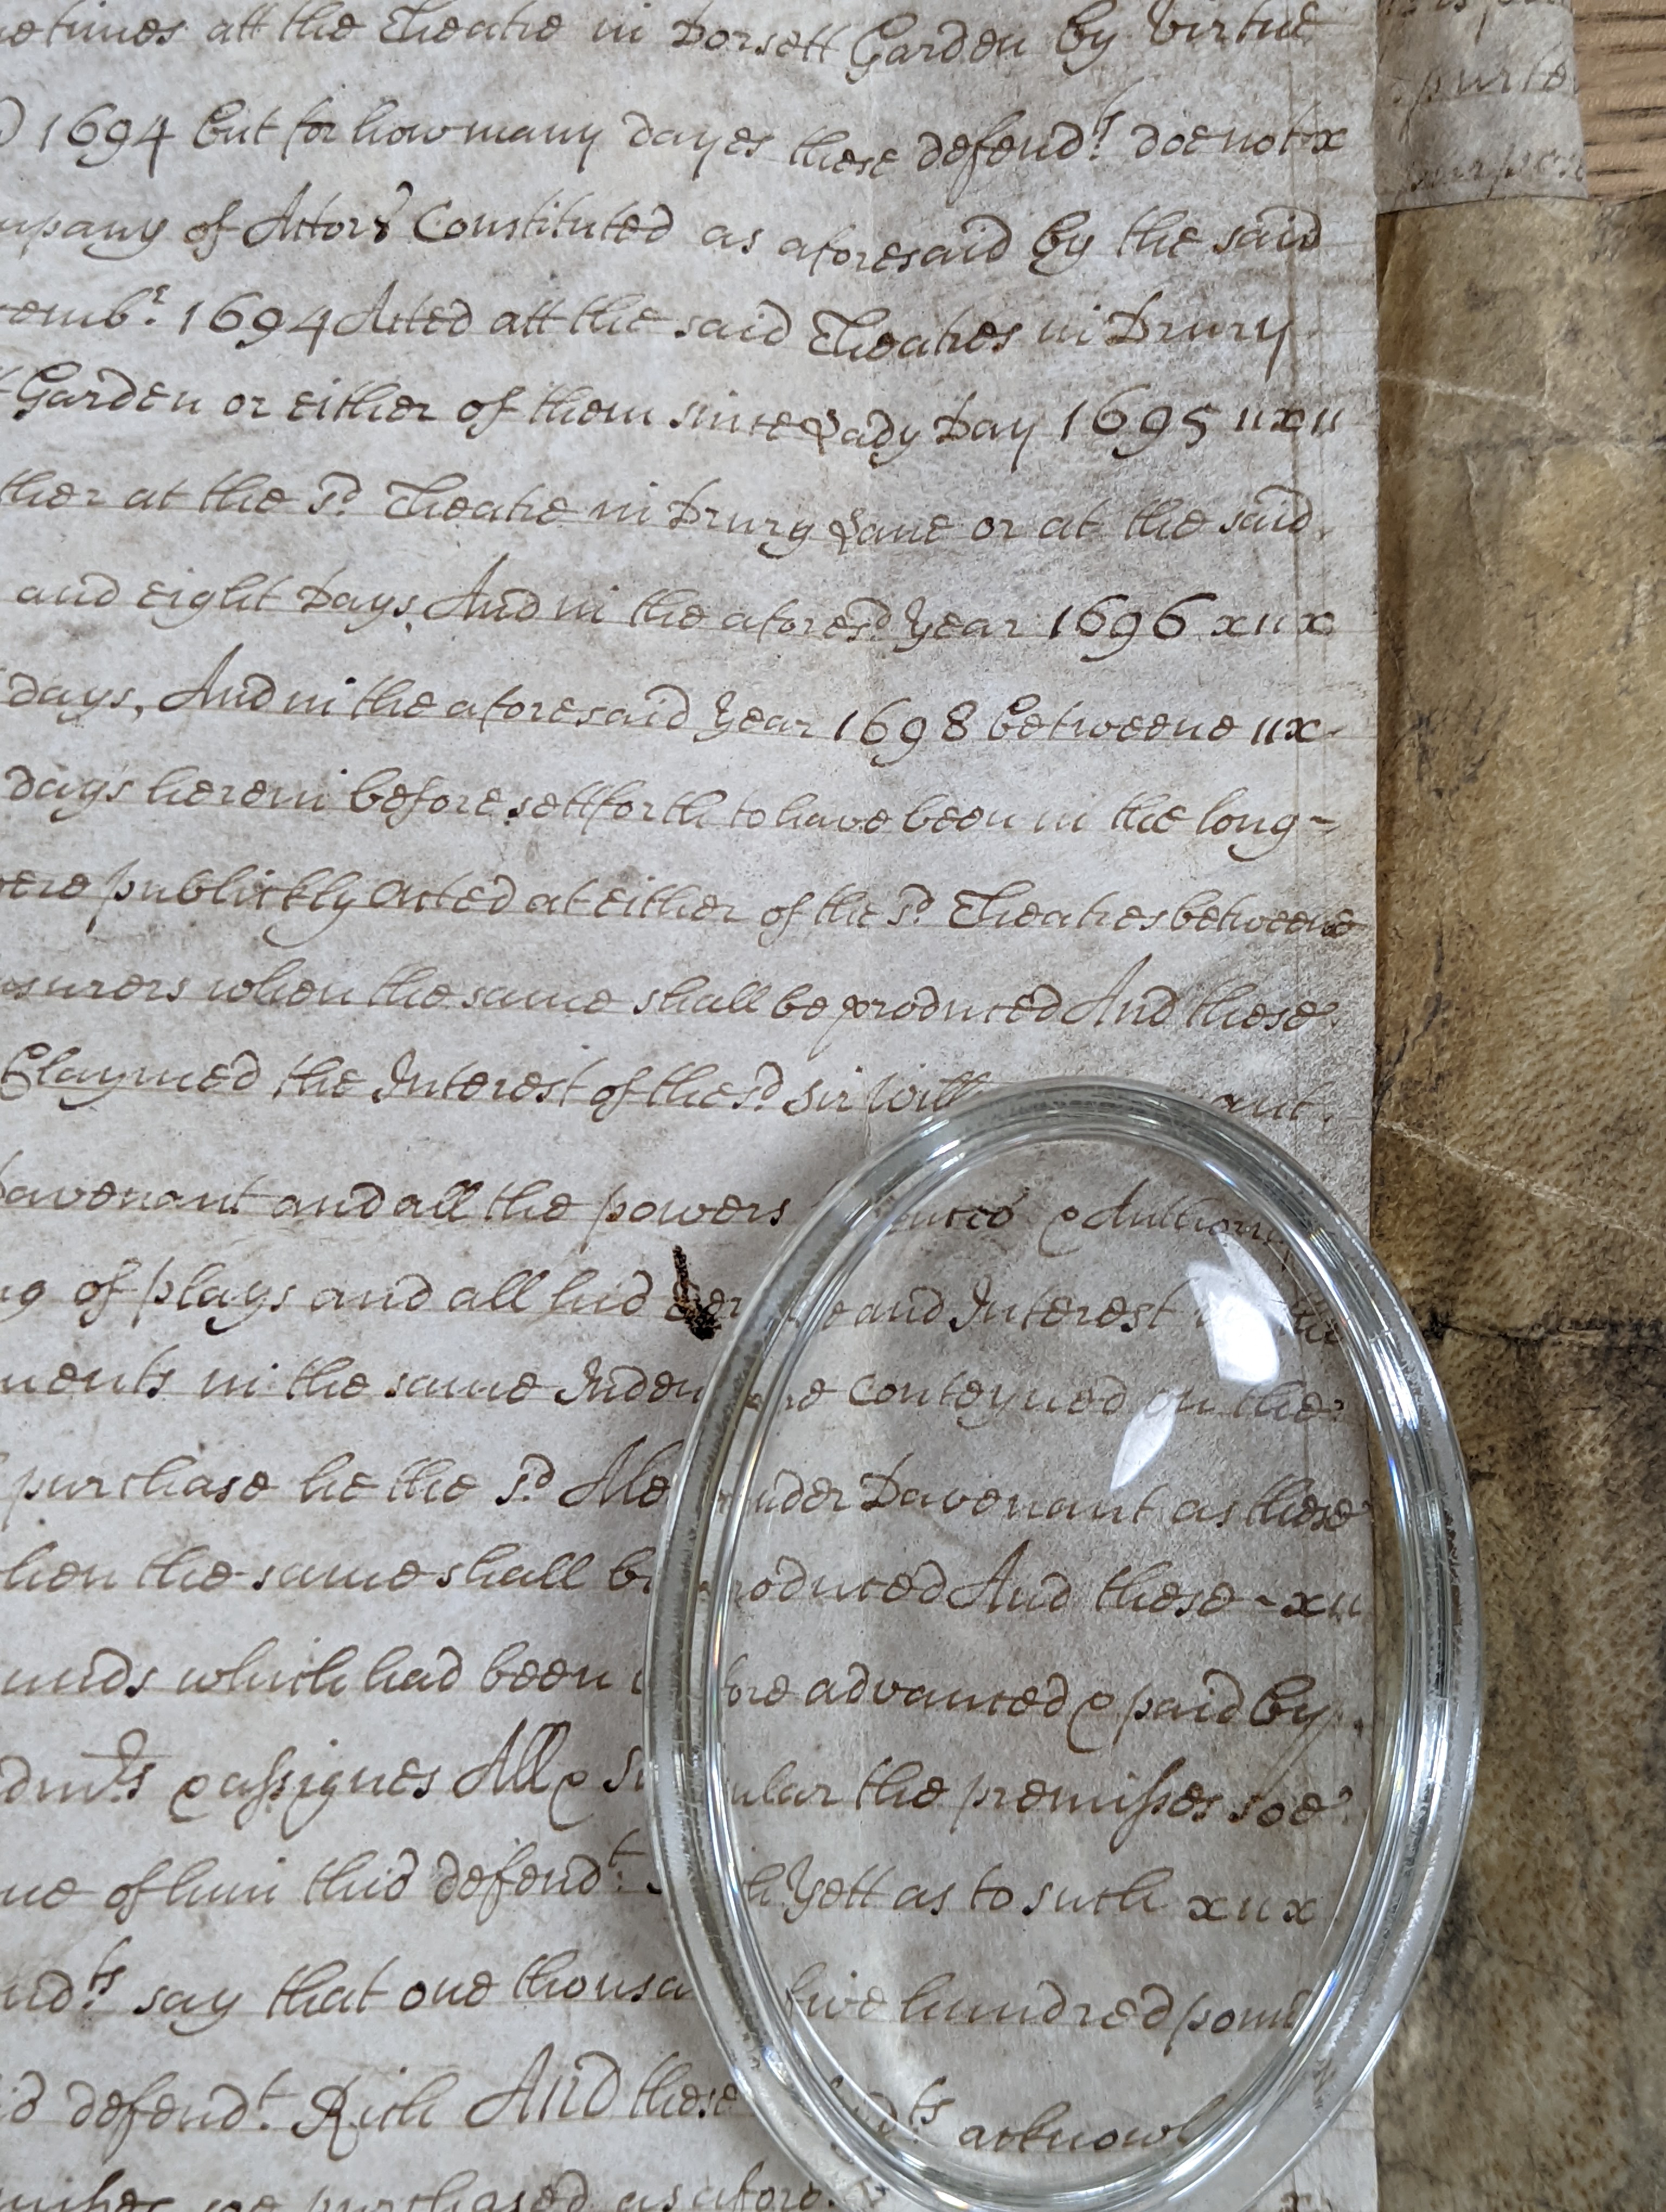 metimes att the Theatre in Dorsett Garden by virtue
1694 but for how many dayes these defendts doe not x
mpany of Actors Constituted as aforesaid by the said
embr. 1694 Acted att the said Theatres in Drury
Garden or either of them since Lady Day 1695 11x11
ther at the sd. Theatre in Drury Lane or at the said
and eight Days, And in the aforesd Year 1696 x11x
days, And in the aforesaid Year 1698 betweene 11x
days herein before settforth to have been in the long
were publickly acted at either of the sd. Theatres betweene
surers when the same shall be produced And these
Claymed the Interest of the sd. Sir Will ant
Davenant and all the powers & Authori
g of plays and all his and Interest the
ments in the same Inden re Conteyned on the
purchase he the sd. Ale nder Davenant as these
hen the same shall be roduced And these x11
unds which had been fore advanced & paid by
dmts & assignes All & Si ular the premisses soe
me of him this defendt. h Yett as to such x11x
ndts. say that one thousa five hundred poun
id defendt. Rich And these dts acknowl
misses soe purchased as afore.